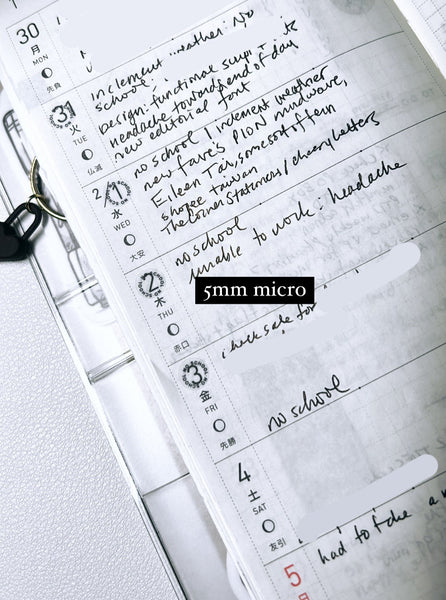 30
月
MON
先負
31
火
TUE
仏滅
inclement weather: No
school!
Design: functional
headache toward end of day
new editorial font
2
1
水
WED
大安
no school / inclement weather
new fave's PION mindwave,
Eileen Tai, some sort of fern
shopee taiwan
The Corner Stationers / cheery letters
2
木
THU
赤口
no school
unable to work: headache
5mm micro
3
金
FRI
先勝
check sale for
no school
4
土
SAT
友引
5
had to take a